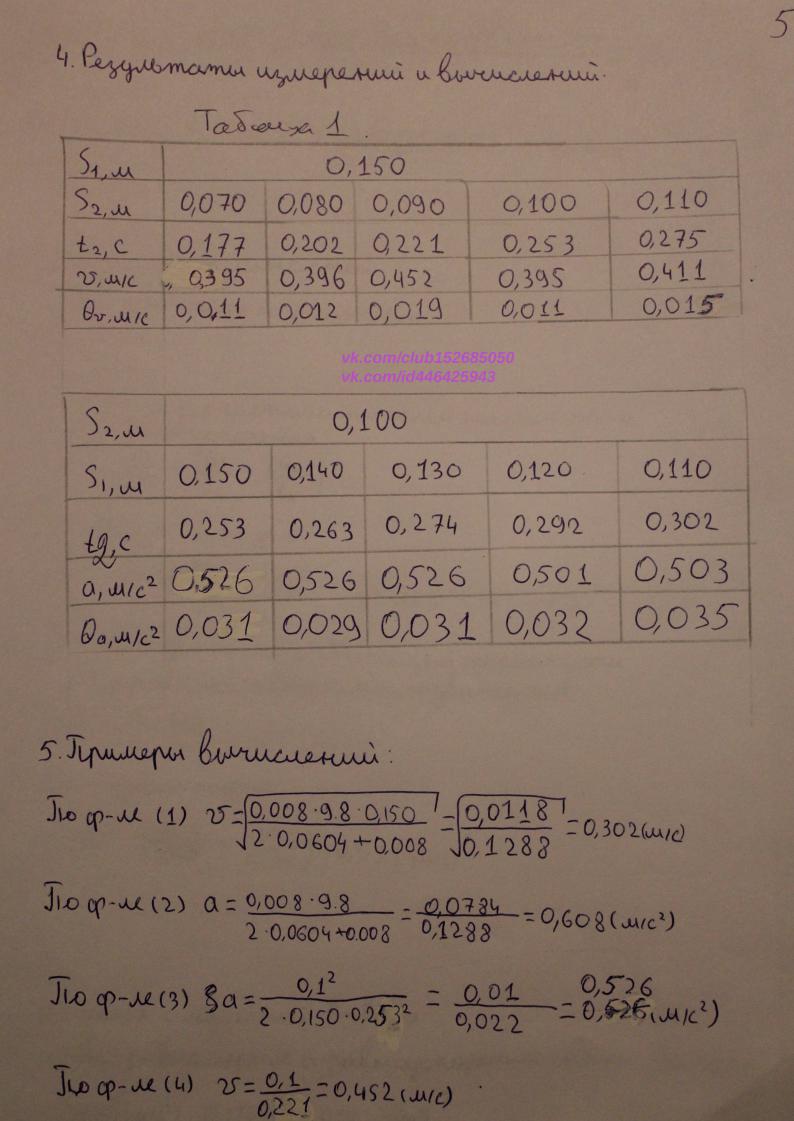 5
4. Результаты измерений и вычислений.
Таблица 1.
S₁, м 0,150
S₂, м 0,070 0,080 0,090 0,100 0,110
t₂, с 0,177 0,202 0,221 0,253 0,275
v, м/с 0,395 0,396 0,452 0,395 0,411
θv, м/с 0,011 0,012 0,019 0,011 0,015
vk.com/club152685050
vk.com/id446425943
S₂, м 0,100
S₁, м 0,150 0,140 0,130 0,120 0,110
t2, с 0,253 0,263 0,274 0,292 0,302
a, м/с² 0,526 0,526 0,526 0,501 0,503
θa, м/с² 0,031 0,029 0,031 0,032 0,035
5. Примеры вычислений:
По ф-ле (1) v = √(0,008·9.8·0,150 / 2·0,0604+0.008) = √(0,0118 / 0,1288) = 0,302 (м/с)
По ф-ле (2) a = 0,008·9.8 / 2·0,0604+0.008 = 0,0784 / 0,1288 = 0,608 (м/с²)
По ф-ле (3) a = 0,1² / 2·0,150·0,253² = 0,01 / 0,022 = 0,526 (м/с²)
По ф-ле (4) v = 0,1 / 0,221 = 0,452 (м/с)